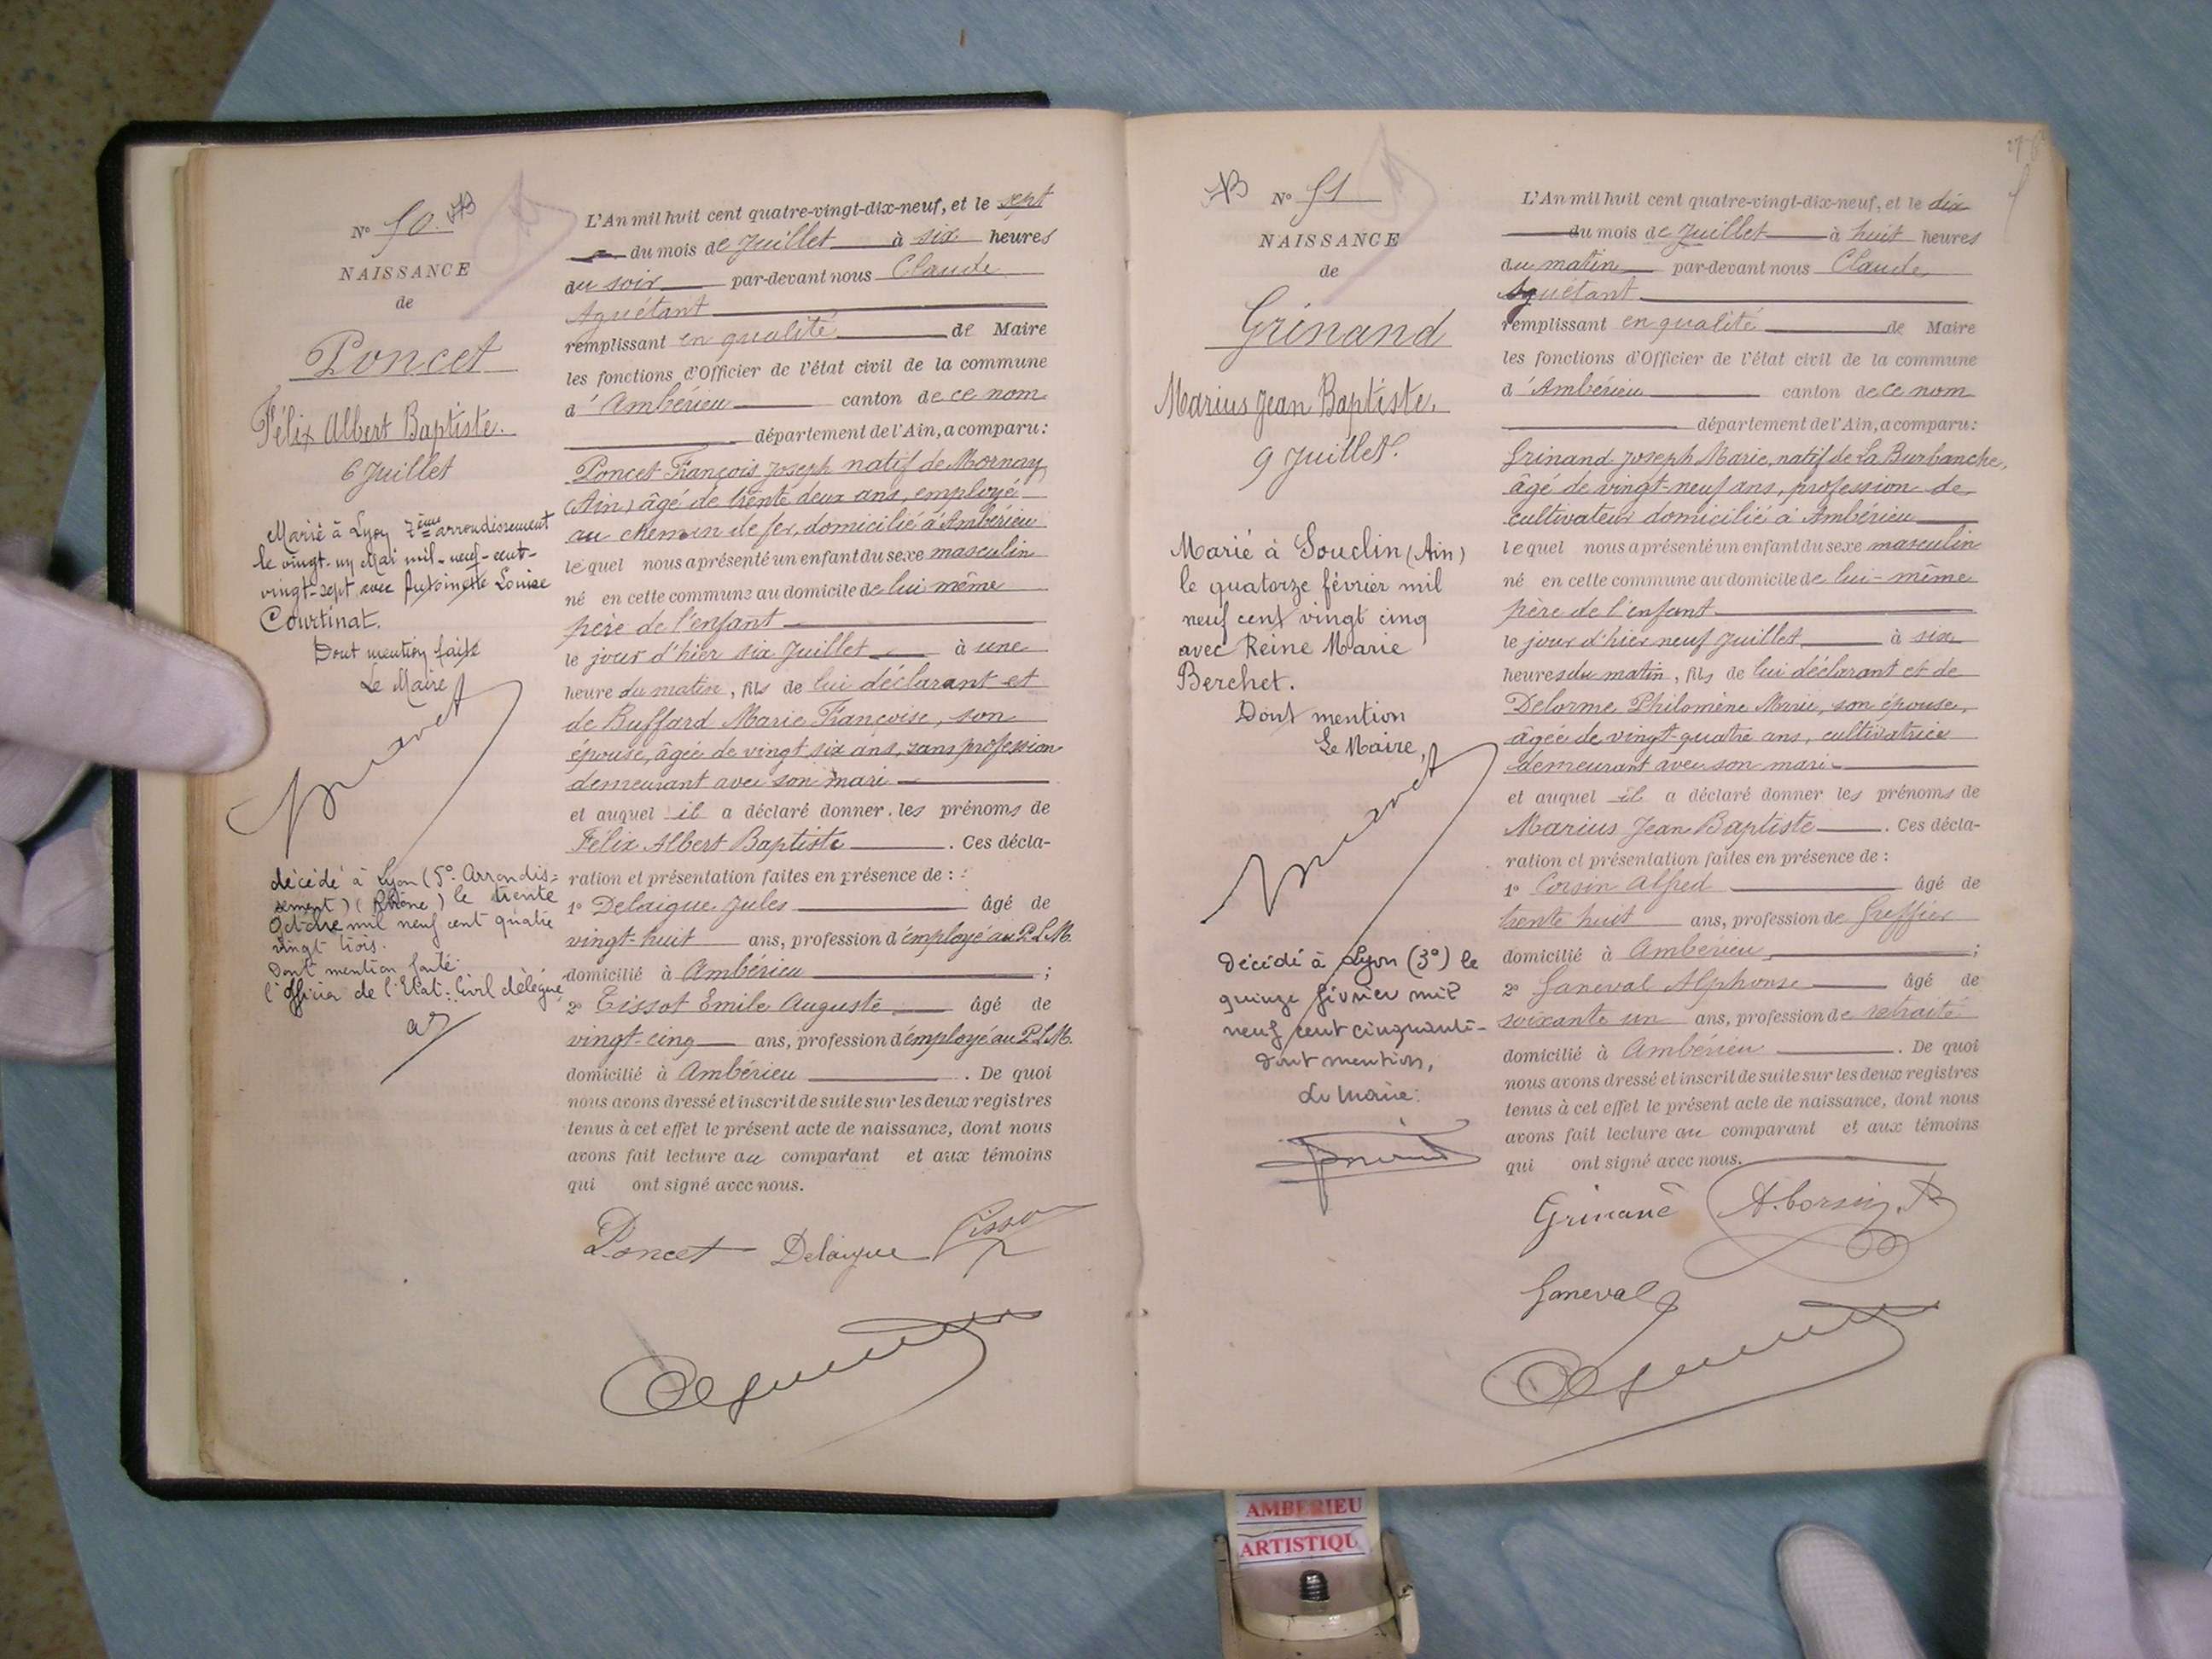 N° 50.
NAISSANCE
de
Poncet
Félix Albert Baptiste.
6 Juillet
Marié à Lyon 7ème arrondissement
le vingt-un Mai mil-neuf-cent-
vingt-sept avec Antoinette Louise
Courtinat.
Dont mention faite
Le Maire
décédé à Lyon (5° Arrondis=
sement) (Rhône) le trente
Octobre mil neuf cent quatre
vingt trois.
Dont mention faite
l'Officier de l'Etat-Civil délégué
L'An mil huit cent quatre-vingt-dix-neuf, et le sept
du mois de Juillet à six heures
du soir par-devant nous Claude
Aguétant
remplissant en qualité de Maire
les fonctions d'Officier de l'état civil de la commune
d'Ambérieu canton de ce nom
département de l'Ain, a comparu:
Poncet François Joseph natif de Mornay
(Ain) âgé de trente deux ans, employé
au chemin de fer, domicilié à Ambérieu
lequel nous a présenté un enfant du sexe masculin
né en cette commune au domicile de lui même
père de l'enfant
le jour d'hier six Juillet à une
heure du matin, fils de lui déclarant et
de Buffard Marie Françoise, son
épouse, âgée de vingt six ans, sans profession
demeurant avec son mari
et auquel il a déclaré donner les prénoms de
Félix Albert Baptiste. Ces décla-
ration et présentation faites en présence de :
1° Delaigue Jules âgé de
vingt-huit ans, profession d'employé au P.L.M.
domicilié à Ambérieu ;
2° Tissot Emile Auguste âgé de
vingt-cinq ans, profession d'employé au P.L.M.
domicilié à Ambérieu. De quoi
nous avons dressé et inscrit de suite sur les deux registres
tenus à cet effet le présent acte de naissance, dont nous
avons fait lecture au comparant et aux témoins
qui ont signé avec nous.
Poncet Delaigue Tissot
N° 51
NAISSANCE
de
Grinand
Marius Jean Baptiste.
9 Juillet.
Marié à Souclin (Ain)
le quatorze février mil
neuf cent vingt cinq
avec Reine Marie
Berchet.
Dont mention
Le Maire,
Décédé à Lyon (3°) le
quinze février mil
neuf cent cinquante-
Dont mention,
Le Maire:
L'An mil huit cent quatre-vingt-dix-neuf, et le dix
du mois de Juillet à huit heures
du matin par-devant nous Claude
Aguétant
remplissant en qualité de Maire
les fonctions d'Officier de l'état civil de la commune
d'Ambérieu canton de ce nom
département de l'Ain, a comparu:
Grinand Joseph Marie, natif de La Burbanche,
âgé de vingt-neuf ans, profession de
cultivateur domicilié à Ambérieu
lequel nous a présenté un enfant du sexe masculin
né en cette commune au domicile de lui-même
père de l'enfant
le jour d'hier neuf Juillet à six
heures du matin, fils de lui déclarant et de
Delorme Philomène Marie, son épouse,
âgée de vingt-quatre ans, cultivatrice
demeurant avec son mari
et auquel il a déclaré donner les prénoms de
Marius Jean Baptiste. Ces décla-
ration et présentation faites en présence de :
1° Corsin Alfred âgé de
trente huit ans, profession de Greffier
domicilié à Ambérieu ;
2° Janeval Alphonse âgé de
soixante un ans, profession de retraité
domicilié à Ambérieu. De quoi
nous avons dressé et inscrit de suite sur les deux registres
tenus à cet effet le présent acte de naissance, dont nous
avons fait lecture au comparant et aux témoins
qui ont signé avec nous.
Grinand A. Corsin
Janeval
AMBERIEU
ARTISTIQU